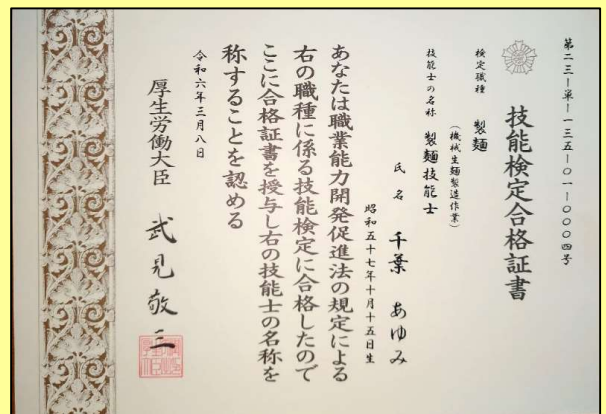 第二三ー単ー一三五ー〇一ー〇〇〇四号
技能検定合格証書
検定職種 製麺
(機械生麺製造作業)
技能士の名称 製麺技能士
氏名 千葉 あゆみ
昭和五十七年十月十五日生
あなたは職業能力開発促進法の規定による
右の職種に係る技能検定に合格したので
ここに合格証書を授与し右の技能士の名称を
称することを認める
令和六年三月八日
厚生労働大臣 武見敬三